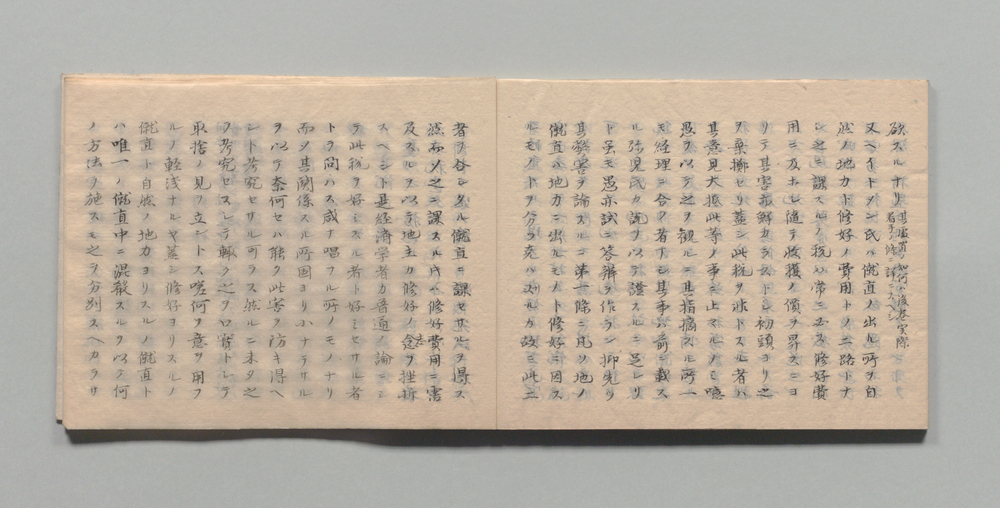 又ヘイトメン氏ハ僦直ノ出ル所ヲ自
然ノ地力ト修好ノ費用トノ二路トナ
シ之ニ課スルノ税ハ常ニ必ス修好費
用ニ及ホシ随テ収穫ノ價ヲ昇スニヨ
リテ其害 鮮カラストシ初頭ヨリ之
ヲ棄擲セリ蓋シ此税ヲ非トスル者ハ
其意見大抵此等ノ事ニ止マルノミ噫
愚ヲ以テ之ヲ観ルニ其指摘スル所一
モ経理ニ合フ者ナシ其事 前ニ載ス
ル 見氏カ説ヲ以テ證スルニ足レリ
ト虽モ愚亦試ニ答辨ヲ作ラン抑先ツ
其弊害ヲ論スルニ第一條ニ凡ソ地ノ
僦直ハ地力ニ出ルモノト修好ニ因ス
ルモノトヲ分ツ充ハスルカ故ニ此二
者ヲ合シタル僦直ニ課セサルヲ得ス
然而メ之ニ課スル片ハ修好費用ニ害
及スルヲ以テ地主カ修好ノ意ヲ挫折
スヘシト是経済学者カ普通ノ論ニシ
テ此税ヲ好ミスル者ト好ミセサル者
トヲ問ハス咸ナ唱フル所ノモノナリ
而シ其関係スル所固ヨリ小ナラサル
ヲ以テ奈何セハ能ク此害ヲ防キ得ヘ
シト考究セサル可ラス然ルニ未タ之
ヲ考究セスシテ輙ク之ヲ口實トシテ
取捨ノ見ヲ立ントス嗟何ヲ意ヲ用フ
ルノ軽浅ナルヤ蓋シ修好ヨリスルノ
僦直ト自然ノ地力ヨリスルノ僦直ト
ハ唯一ノ僦直中ニ混殽スルヲ以テ何
ノ方法ヲ施スモ之ヲ分別スヘカラサ